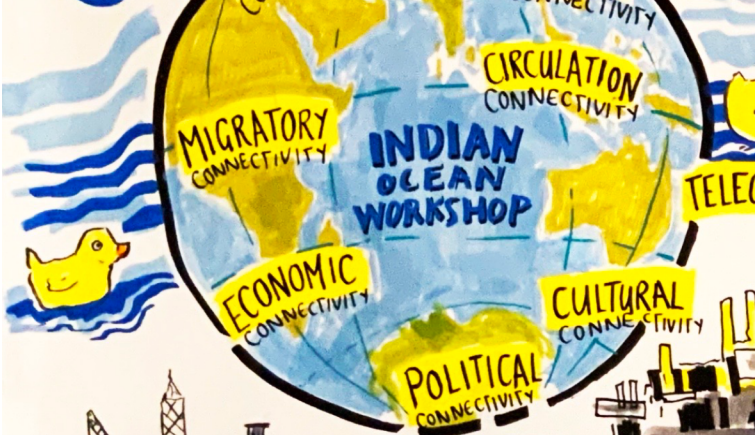 CIRCULATION
CONNECTIVITY
MIGRATORY
CONNECTIVITY
INDIAN
OCEAN
WORKSHOP
ECONOMIC
CONNECTIVITY
CULTURAL
CONNECTIVITY
POLITICAL
CONNECTIVITY